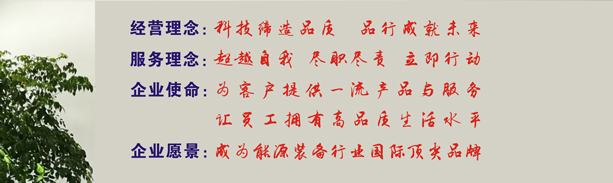 经营理念：科技缔造品质 品行成就未来
服务理念：超越自我 尽职尽责 立即行动
企业使命：为客户提供一流产品与服务
让员工拥有高品质生活水平
企业愿景：成为能源装备行业国际顶尖品牌